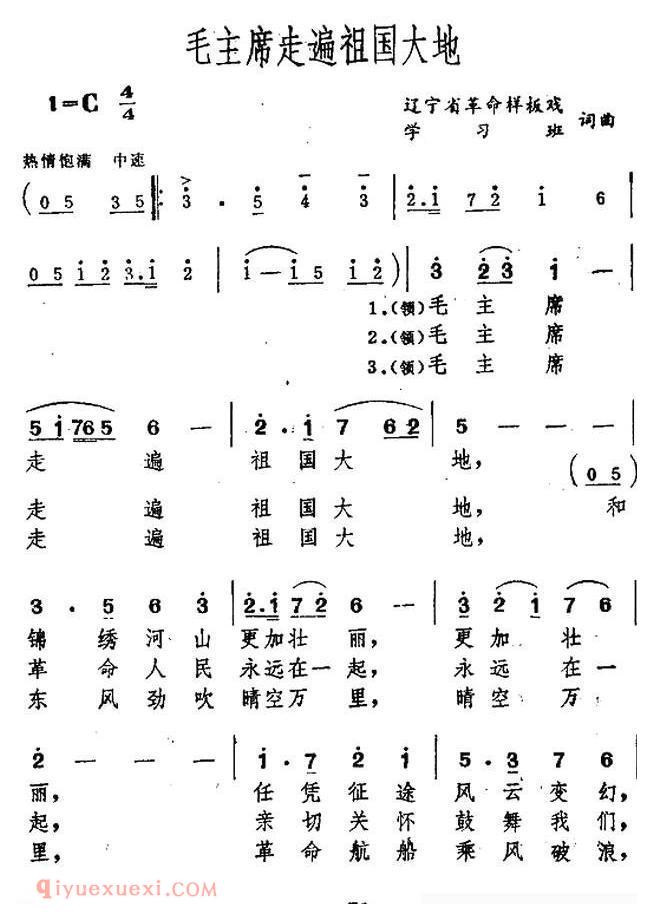 毛主席走遍祖国大地
1=C 4/4
辽宁省革命样板戏
学习班 词曲
热情饱满 中速
(0 5 3 5 |: 3 · 5 4 3 | 2·1 7 2 1 6 |
0 5 1 2 3·1 2 | 1 — 1 5 1 2) | 3 2 3 1 — |
1.(领)毛 主 席
2.(领)毛 主 席
3.(领)毛 主 席
5 1 7 6 5 6 — | 2 · 1 7 6 2 | 5 — — (0 5) |
走 遍 祖 国 大 地,
走 遍 祖 国 大 地, 和
走 遍 祖 国 大 地,
3 · 5 6 3 | 2·1 7 2 6 — | 3 2 1 7 6 |
锦 绣 河 山 更加壮 丽, 更 加 壮
革 命 人 民 永远在一起, 永 远 在 一
东 风 劲 吹 晴空万 里, 晴 空 万
2 — — — | 1 · 7 2 1 | 5 · 3 7 6 |
丽, 任 凭 征 途 风 云 变 幻,
起, 亲 切 关 怀 鼓 舞 我 们,
里, 革 命 航 船 乘 风 破 浪,
qiyuexuexi.com